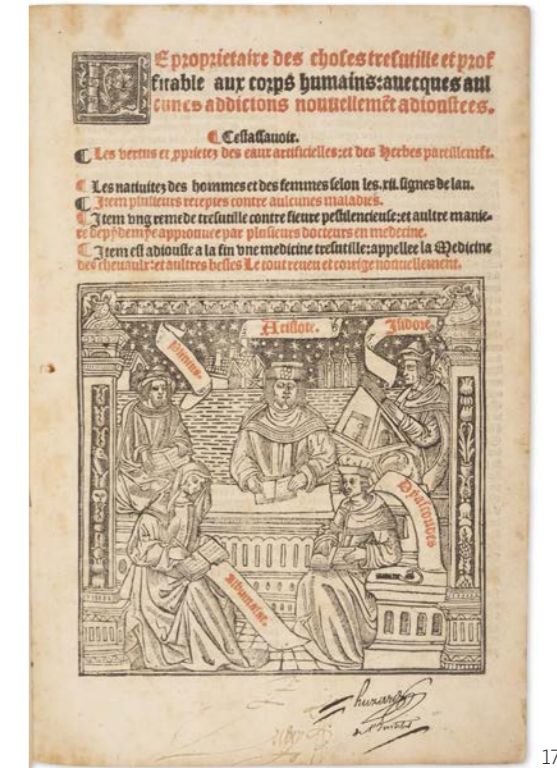 LE proprietaire des choses tresutille et prof
fitable aux corps humains: auecques aul
cunes addictons nouuellemēt adioustees.
¶ Cestassauoir.
¶ Les vertus et ꝓprietez des eaux artificielles: et des Herbes pareillemēt.
¶ Les natiuitez des hommes et des femmes selon les .xii. signes de lan.
¶ Item plusieurs receptes contre aulcunes maladies.
¶ Item vng remede tresutille contre fieure pestilencieuse: et aultre manie-
re depydemye approuuee par plusieurs docteurs en medecine.
¶ Item est adiouste a la fin vne medicine tresutille: appellee la Medicine
des cheuaulx: et aultres bestes Le tout reueu et corrige nouuellement.
Aristote.
Isidore.
Plinius.
Dyascorides
Albumasar.
huzard
17